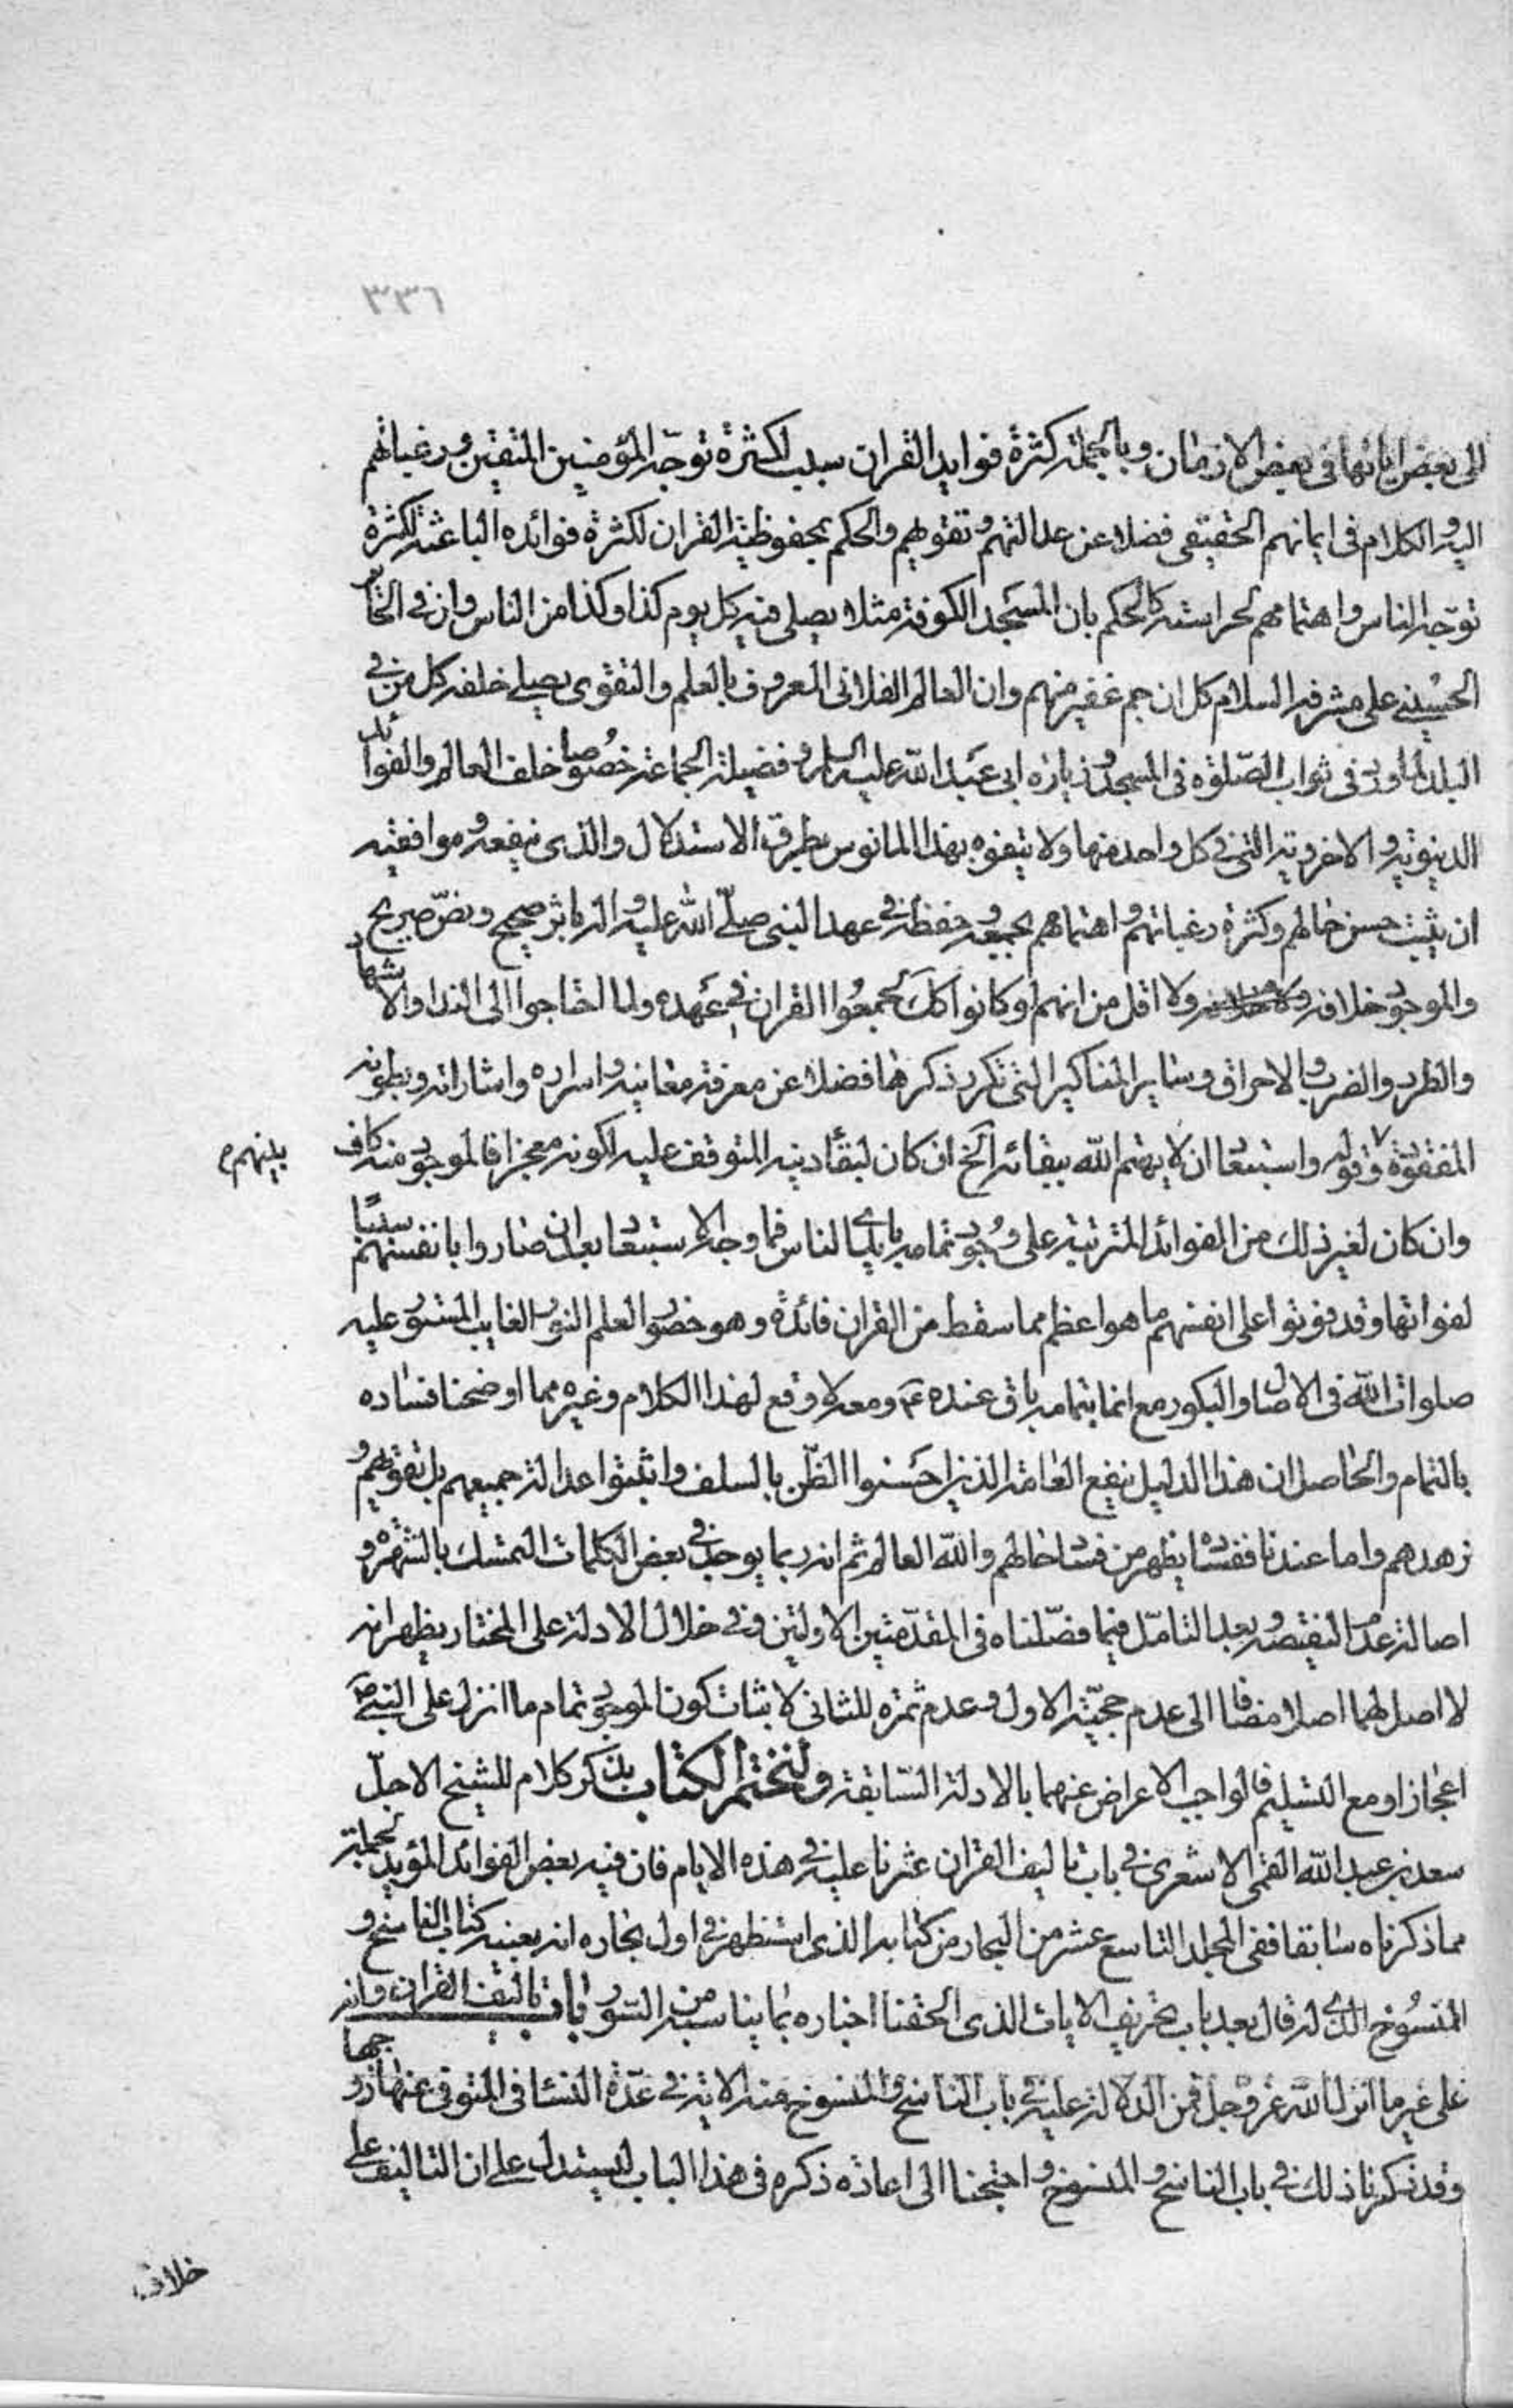 ٣٣٦
الى بعض اياتها فى بعض الازمان وبالجملة كثرة فوايد القران سبب لكثرة توجه المؤمنين المتقين ورغباتهم
اليه والكلام فى ايمانهم الحقيقى فضلا عن عدالتهم وتقويهم والحكم بمحفوظية القران لكثرة فوائده الباعثة لكثرة
توجه الناس واهتمامهم لحراسته كالحكم بان المسجد الكوفة مثلا يصلى فيه كل يوم كذا وكذا من الناس وان فى الحائر
الحسينى على مشرفه السلام كل ان جم غفير منهم وان العالم الفلانى المعروف بالعلم والتقوى يصلى خلفه كل من فى
البلد لما ورد فى ثواب الصلوة فى المسجد وزيارة ابى عبد الله عليه السلم وفضيلة الجماعة خصوصا خلف العالم والفوائد
الدنيوية والاخروية التى فى كل واحد منها ولا يتفوه بهذا المانوس بطرق الاستدلال والذى ينفعه وموافقيه
ان يثبت حسن حالهم وكثرة رغباتهم واهتمامهم بجمعه وحفظه فى عهد النبى صلى الله عليه واله باثر صحيح ونص صريح
والموجود خلافه ولا اقل من انهم لو كانوا كك لجمعوا القران فى عهده ولما احتاجوا الى الندا والاشهاد
والطرد والضرب والاحراق وساير المناكير التى تكرر ذكرها فضلا عن معرفة معانيه واسراره واشاراته وبطونه
المفقودة وقوله واستبعاد ان لا يهتم الله ببقائه الخ ان كان لبقاء دينه المتوقف عليه لكونه معجزا فالموجود منه كاف
بينهم م
وان كان لغير ذلك من الفوائد المترتبة على وجود تمامه بايدى الناس فما وجه الاستبعاد بعد ان صاروا بانفسهم سببا
لفواتها وقد فوتوا على انفسهم ما هو اعظم مما سقط من القران فائدة وهو حضور العلم النور الغايب المستور عليه
صلوات الله فى الاصال والبكور مع انه بتمامه باق عنده ع ومعه لا وقع لهذا الكلام وغيره مما اوضحنا فساده
بالتمام والحاصل ان هذا الدليل ينفع العامة الذين احسنوا الظن بالسلف واثبتوا عدالة جميعهم بل تقويهم و
زهدهم واما عندنا ففساده يظهر من فساد حالهم والله العالم ثم انه ربما يوجد فى بعض الكلمات التمسك بالشهرة و
اصالة عدم النقيصة وبعد التامل فيما فصلناه فى المقدمتين الاوليين وفى خلال الادلة على المختار يظهر انه
لا اصل لهما اصلا مضافا الى عدم حجية الاول وعدم ثمرة للثانى لاثبات كون الموجود تمام ما انزل على النبى ص
اعجازا ومع التسليم فالواجب الاعراض عنهما بالادلة السابقة ولنختم الكتاب بذكر كلام للشيخ الاجل
سعد بن عبد الله القمى الاشعرى فى باب تاليف القران عثرنا عليه فى هذه الايام فان فيه بعض الفوائد المؤيد لجملة
مما ذكرناه سابقا ففى المجلد التاسع عشر من البحار من كتابه الذى استظهر فى اول بحاره انه بعينه كتاب الناسخ و
المنسوخ الذى له قال بعد باب تحريف الايات الذى الحقنا اخباره بما يناسبه من السور باب تاليف القران وانه
على غير ما انزل الله عز وجل فمن الدلالة عليه فى باب الناسخ والمنسوخ منه الاية فى عدة النساء فى المتوفى عنها زوجها
وقد ذكرنا ذلك فى باب الناسخ والمنسوخ واحتجنا الى اعادة ذكره فى هذا الباب ليستدل على ان التاليف على
خلاف